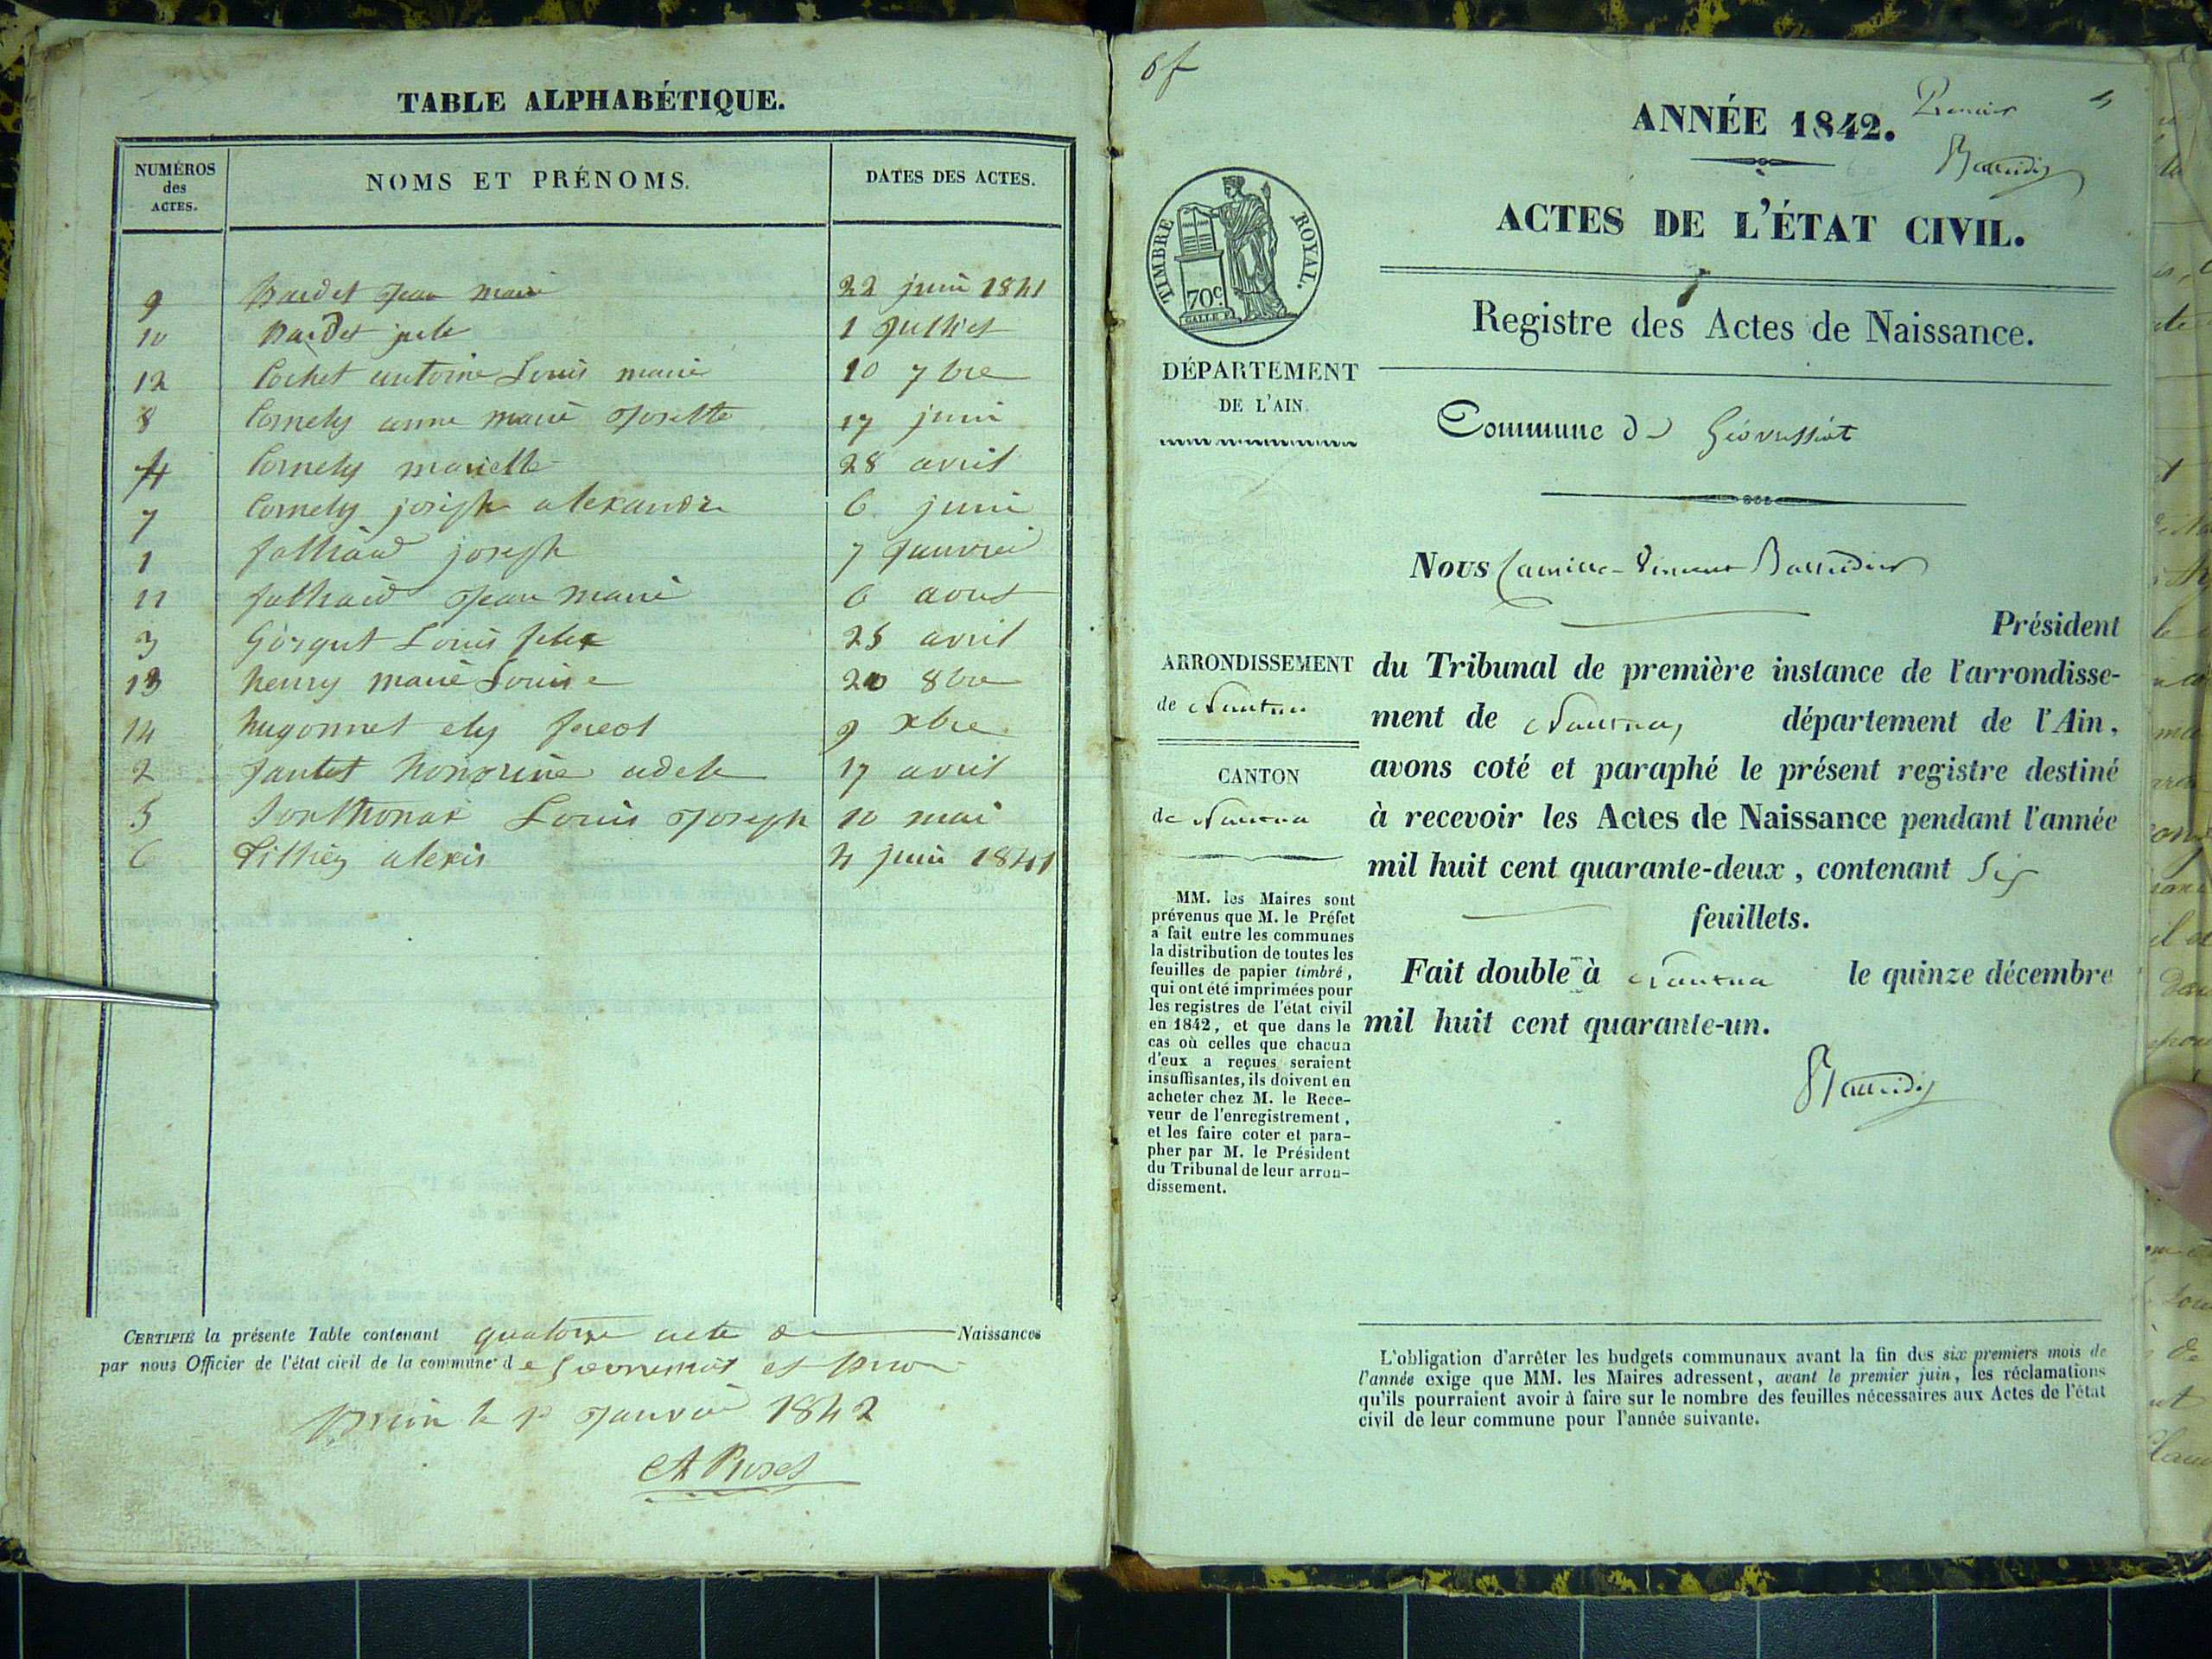 TABLE ALPHABÉTIQUE.
NUMÉROS des ACTES.
NOMS ET PRÉNOMS.
DATES DES ACTES.
9 Bardet Jean marie 22 juin 1841
10 Bardet jule 1 Juillet
12 Cochet antoine Louis marie 10 7bre
8 Cornely anne marie Josette 17 juin
4 Cornely mariette 28 avril
7 Cornely joseph alexandre 6 juin
1 joseph 7 Janvier
11 Jean marie 6 aout
3 Louis felix 25 avril
13 henry marie Louise 20 8bre
14 hugonnet ely 9 xbre
2 Jantet honorine adele 17 avril
5 Sonthonax Louis Joseph 10 mai
6 alexis 4 juin 1841
CERTIFIÉ la présente Table contenant quatorze acte de Naissances
par nous Officier de l'état civil de la commune de et
le 1 Janvier 1842
6f
Premier
ANNÉE 1842.
Baudin
ACTES DE L'ÉTAT CIVIL.
TIMBRE ROYAL.
70c
Registre des Actes de Naissance.
DÉPARTEMENT
DE L'AIN.
Commune de Géovreissiat
Nous Camille-Vincent
Président
ARRONDISSEMENT
de Nantua
du Tribunal de première instance de l'arrondisse-
ment de Nantua, département de l'Ain,
avons coté et paraphé le présent registre destiné
à recevoir les Actes de Naissance pendant l'année
mil huit cent quarante-deux, contenant Six
feuillets.
Fait double à Nantua le quinze décembre
mil huit cent quarante-un.
CANTON
de Nantua
MM. les Maires sont
prévenus que M. le Préfet
a fait entre les communes
la distribution de toutes les
feuilles de papier timbré,
qui ont été imprimées pour
les registres de l'état civil
en 1842, et que dans le
cas où celles que chacun
d'eux a reçues seraient
insuffisantes, ils doivent en
acheter chez M. le Rece-
veur de l'enregistrement,
et les faire coter et para-
pher par M. le Président
du Tribunal de leur arron-
dissement.
L'obligation d'arrêter les budgets communaux avant la fin des six premiers mois de
l'année exige que MM. les Maires adressent, avant le premier juin, les réclamations
qu'ils pourraient avoir à faire sur le nombre des feuilles nécessaires aux Actes de l'état
civil de leur commune pour l'année suivante.